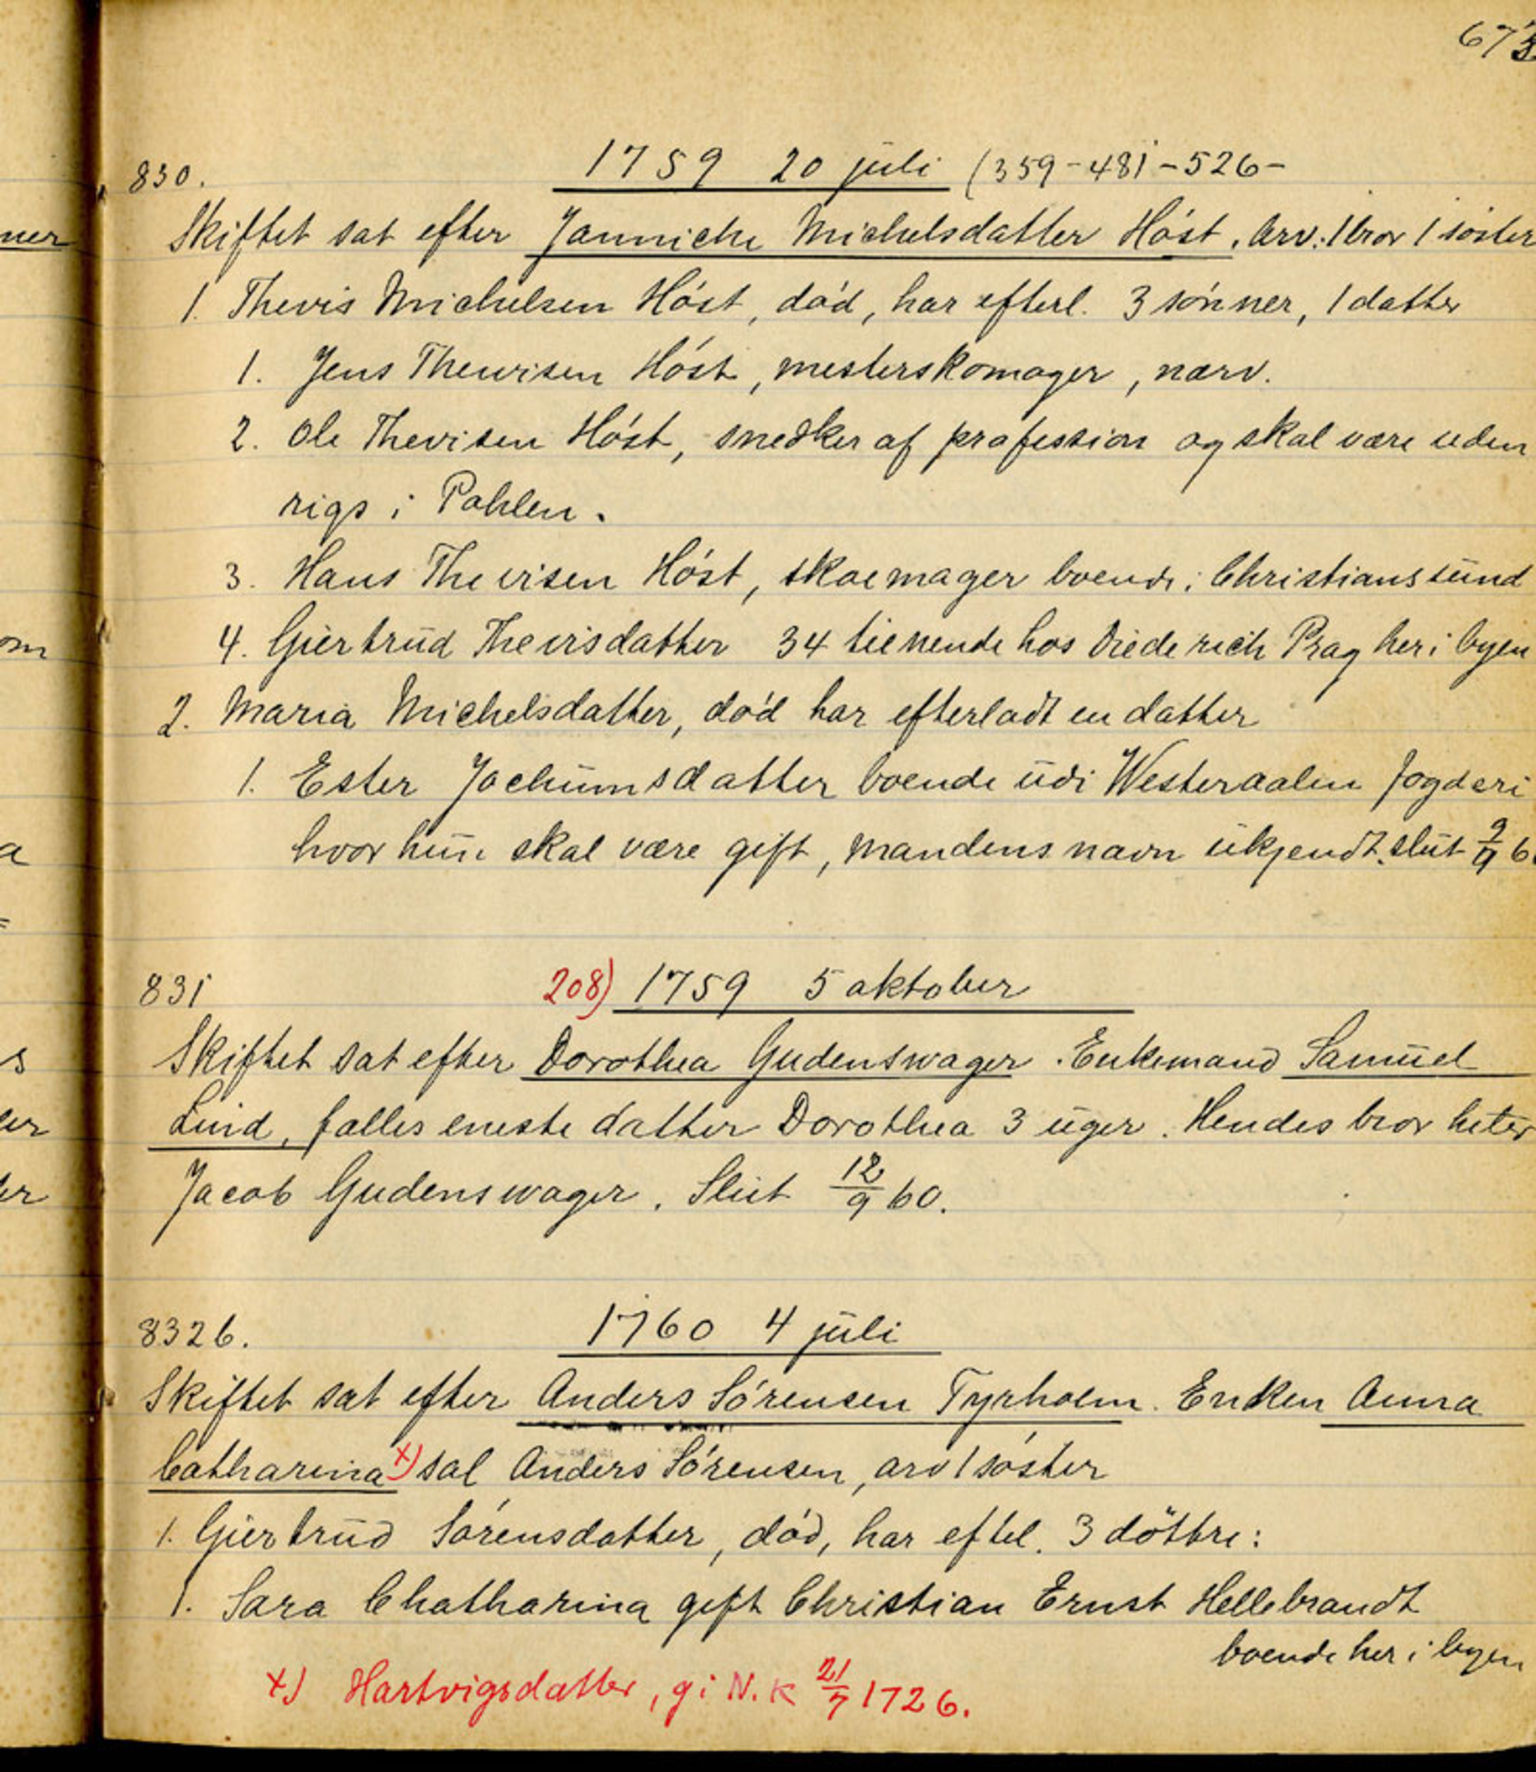 673
830. 1759 20 juli (359-481-526-
Skiftet sat efter Janniche Michelsdatter Høst. Arv: 1 bror 1 søster
1. Thevis Michelsen Høst, død, har efterl. 3 sønner, 1 datter
1. Jens Thewisen Høst, mesterskomager, nærv.
2. Ole Thevisen Høst, snedker af profession og skal være uden
rigs i Pohlen.
3. Hans Thevisen Høst, skoemager boende i Christianssund
4. Giertrud Thevisdatter 34 tienende hos Diederich Prag her i byen
2. Maria Michelsdatter, død har efterladt en datter
1. Ester Jochumsdatter boende udi Westeraalen fogderi
hvor hun skal være gift, mandens navn ukjendt. slut 9/9 6
831 208) 1759 5 oktober
Skiftet sat efter Dorothea Gudenswager. Enkemand Samuel
Lind, fælles eneste datter Dorothea 3 uger. Hendes bror heter
Jacob Gudenswager. Slut 12/9 60.
8326. 1760 4 juli
Skiftet sat efter Anders Sørensen Tyrholm. Enken Anna
Catharina x) sal Anders Sørensen, arv 1 søster
1. Giertrud Sørensdatter, død, har eftel. 3 döttre:
1. Sara Chatharina gift Christian Ernst Hellebrandt
boende her i byen
x) Hartvigsdatter, g i N.K 21/7 1726.
ner
om
a
s
er
er